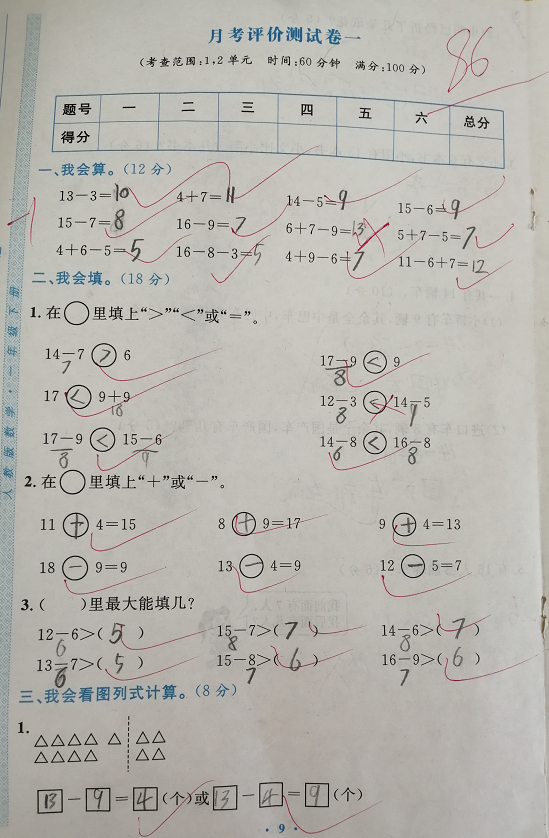 月考评价测试卷一
86
(考查范围:1,2单元 时间:60分钟 满分:100分)
题号 一 二 三 四 五 六 总分
得分
一、我会算。(12分)
13-3=10 4+7=11 14-5=9 15-6=9
-1
15-7=8 16-9=7 6+7-9=13 5+7-5=7
4+6-5=5 16-8-3=5 4+9-6=7 11-6+7=12
二、我会填。(18分)
1.在○里填上“>”“<”或“=”。
14-7>6 17-9<9
7 8
17<9+9 12-3<14-5
18 8 9
17-9<15-6 14-8<16-8
8 9 6 8
2.在○里填上“+”或“-”。
11+4=15 8+9=17 9+4=13
18-9=9 13-4=9 12-5=7
3.( )里最大能填几?
12-6>(5) 15-7>(7) 14-6>(7)
6 8 8
13-7>(5) 15-8>(6) 16-9>(6)
6 7 7
三、我会看图列式计算。(8分)
1.
13-9=4(个)或13-4=9(个)
人教版数学·一年级下册
·9·